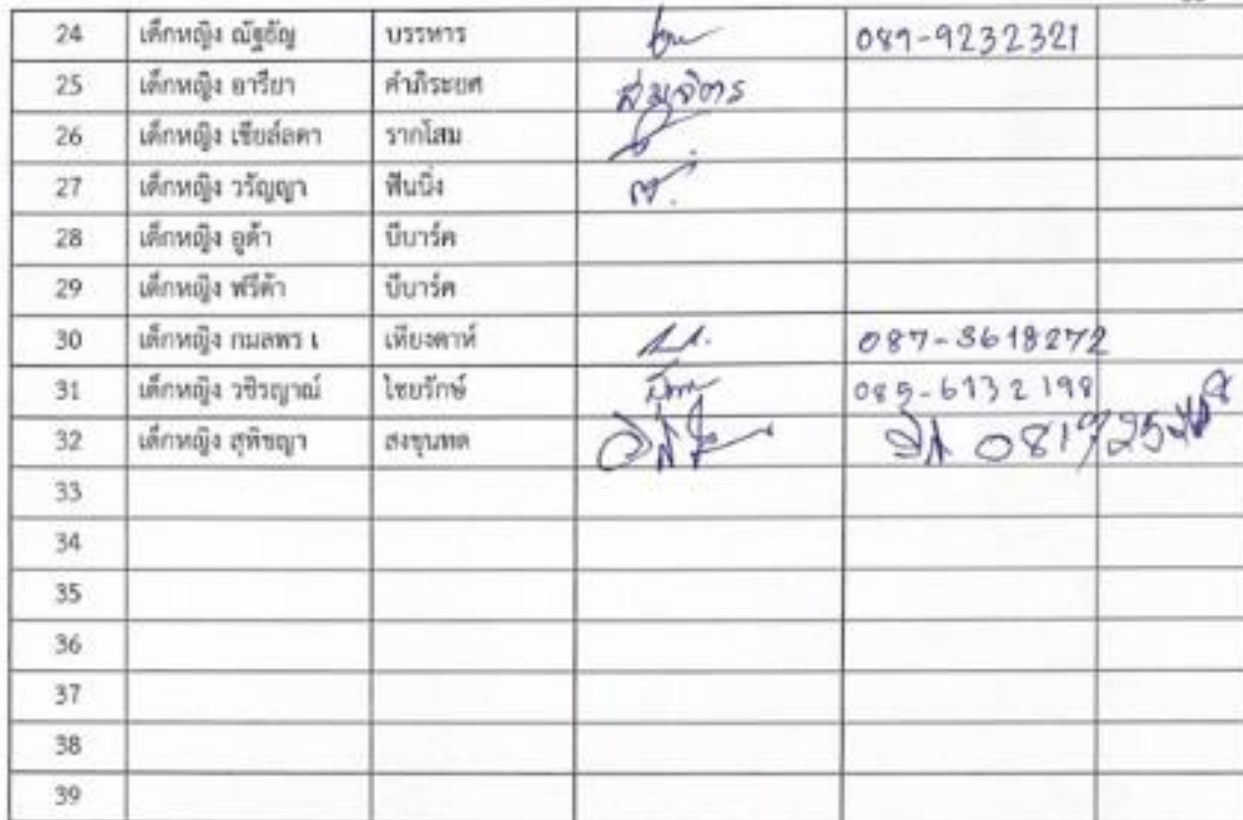 24 เด็กหญิง ณัฐธัญ บรรหาร 089-9232321
25 เด็กหญิง อารียา คำภิระยศ สมจิตร
26 เด็กหญิง เชียล์ลดา รากโสม
27 เด็กหญิง วรัญญา ฟันนิ่ง
28 เด็กหญิง อูด้า บีบาร์ค
29 เด็กหญิง ฟรีด้า บีบาร์ค
30 เด็กหญิง กมลพร เ เที่ยงดาห์ 087-3618272
31 เด็กหญิง วชิรญาณ์ ไชยรักษ์ 085-6132198
32 เด็กหญิง สุพิชญา สงขุนทด
33
34
35
36
37
38
39